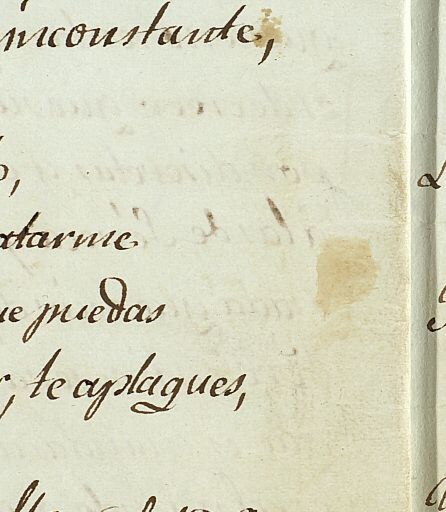 inconstante,
atarme
ue puedas
, te aplaques,